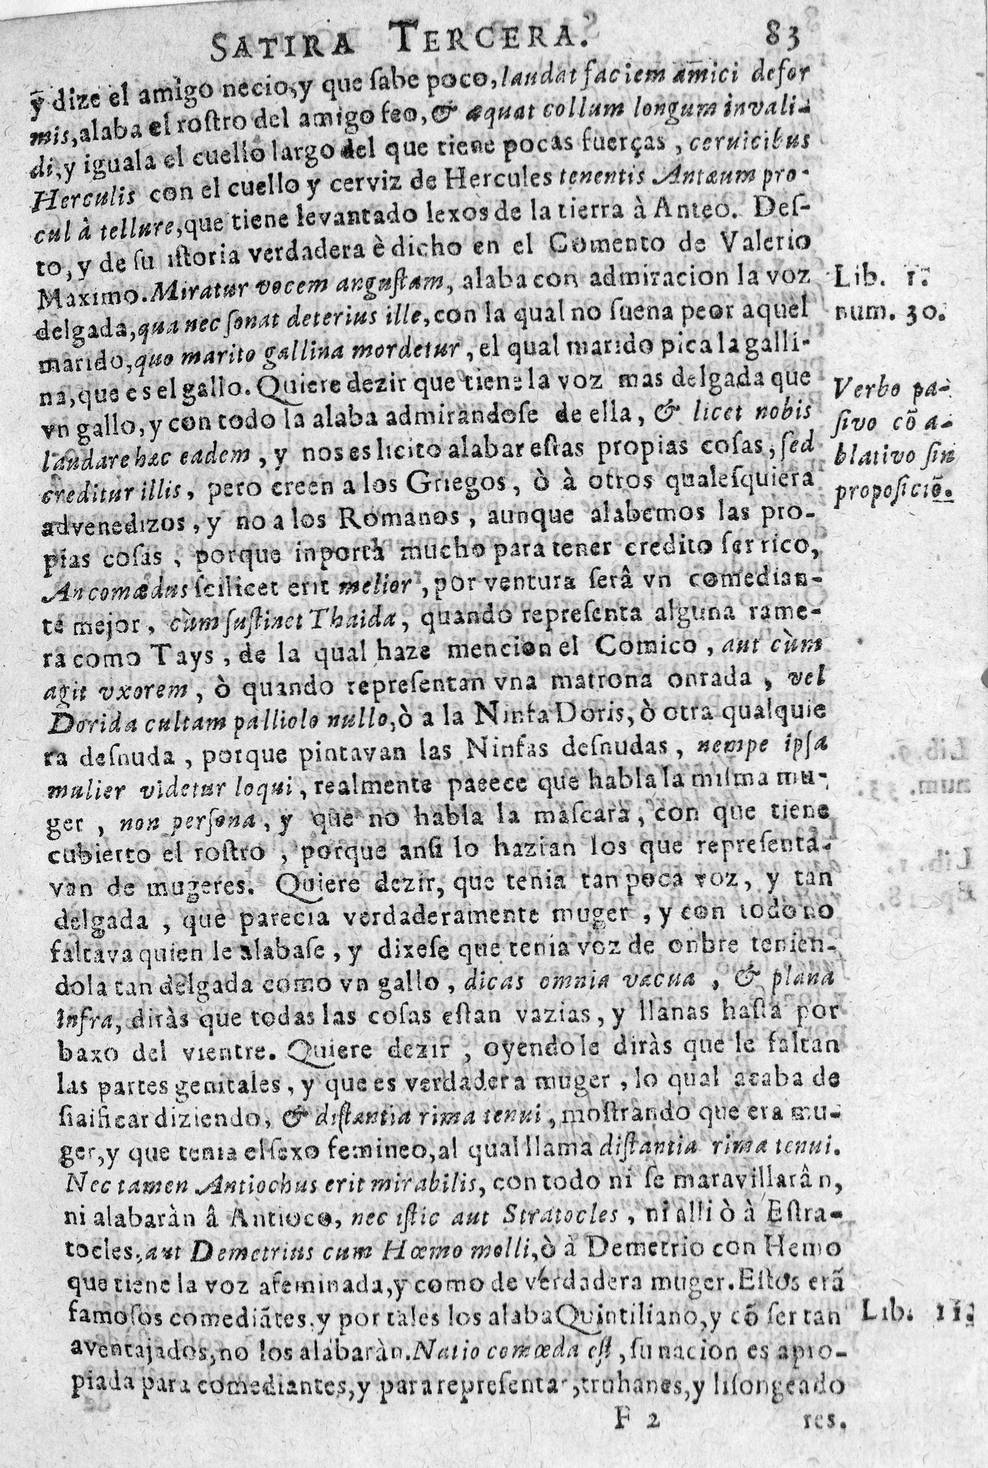 SATIRA TERCERA. 83
ȳ dize el amigo necio, y que ſabe poco, laudat faciem amici defor
mis, alaba el roſtro del amigo feo, & æquat collum longum invali-
di, y iguala el cuello largo del que tiene pocas fuerças, cervicibus
Herculis con el cuello y cerviz de Hercules tenentis Antæum pro-
cul à tellure, que tiene levantado lexos de la tierra à Anteo. Deſ-
to, y de ſu iſtoria verdadera è dicho en el Comento de Valerio
Maximo. Miratur vocem anguſtam, alaba con admiracion la voz
Lib. 1.
delgada, qua nec ſonat deterius ille, con la qual no ſuena peor aquel
num. 30.
marido, quo marito gallina mordetur, el qual marido pica la galli-
na, que es el gallo. Quiere dezir que tiene la voz mas delgada que
Verbo pa-
vn gallo, y con todo la alaba admirandoſe de ella, & licet nobis
ſivo cō a-
laudare hæc eadem, y nos es licito alabar eſtas propias coſas, ſed
blativo ſin
creditur illis, pero creen a los Griegos, ò à otros qualeſquiera
propoſiciō.
advenedizos, y no a los Romanos, aunque alabemos las pro-
pias coſas, porque inporta mucho para tener credito ſer rico,
An comœdus scilicet erit melior, por ventura ſerâ vn comedian-
te mejor, cùm ſuſtinet Thaida, quando repreſenta alguna rame-
ra como Tays, de la qual haze mencion el Comico, aut cùm
agit vxorem, ò quando repreſentan vna matrona onrada, vel
Dorida cultam palliolo nullo, ò a la Ninfa Doris, ò otra qualquie
ra deſnuda, porque pintavan las Ninfas deſnudas, nempe ipſa
mulier videtur loqui, realmente paeece que habla la miſma mu-
ger, non perſona, y que no habla la maſcara, con que tiene
cubierto el roſtro, porque anſi lo hazian los que repreſenta-
van de mugeres. Quiere dezir, que tenia tan poca voz, y tan
delgada, que parecia verdaderamente muger, y con todo no
faltava quien le alabaſe, y dixeſe que tenia voz de onbre tenien-
dola tan delgada como vn gallo, dicas omnia vacua, & plana
infra, diràs que todas las coſas eſtan vazias, y llanas haſta por
baxo del vientre. Quiere dezir, oyendole diràs que le faltan
las partes genitales, y que es verdadera muger, lo qual acaba de
ſiaificar diziendo, & diſtantia rima tenui, moſtrando que era mu-
ger, y que tenia el ſexo femineo, al qual llama diſtantia rima tenui.
Nec tamen Antiochus erit mirabilis, con todo ni ſe maravillarân,
ni alabaràn â Antioco, nec iſtic aut Stratocles, ni alli ò à Eſtra-
tocles, aut Demetrius cum Hœmo molli, ò à Demetrio con Hemo
que tiene la voz afeminada, y como de verdadera muger. Eſtos erā
famoſos comediātes, y por tales los alaba Quintiliano, y cō ſer tan
Lib. 11.
aventajados, no los alabaràn. Natio comœda eſt, ſu nacion es apro-
piada para comediantes, y para repreſentar, truhanes, y liſongeado
F 2 res.